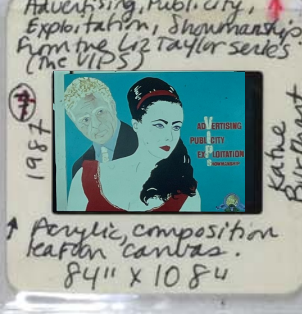 Advertising, Publicity,
Exploitation, Showmanship
From the Liz Taylor series
(The VIPS)
1987
ADVERTISING
PUBLICITY
EXPLOITATION
SHOWMANSHIP
Kathe
Burkhart
Acrylic, composition
leaf on canvas.
84" x 108"